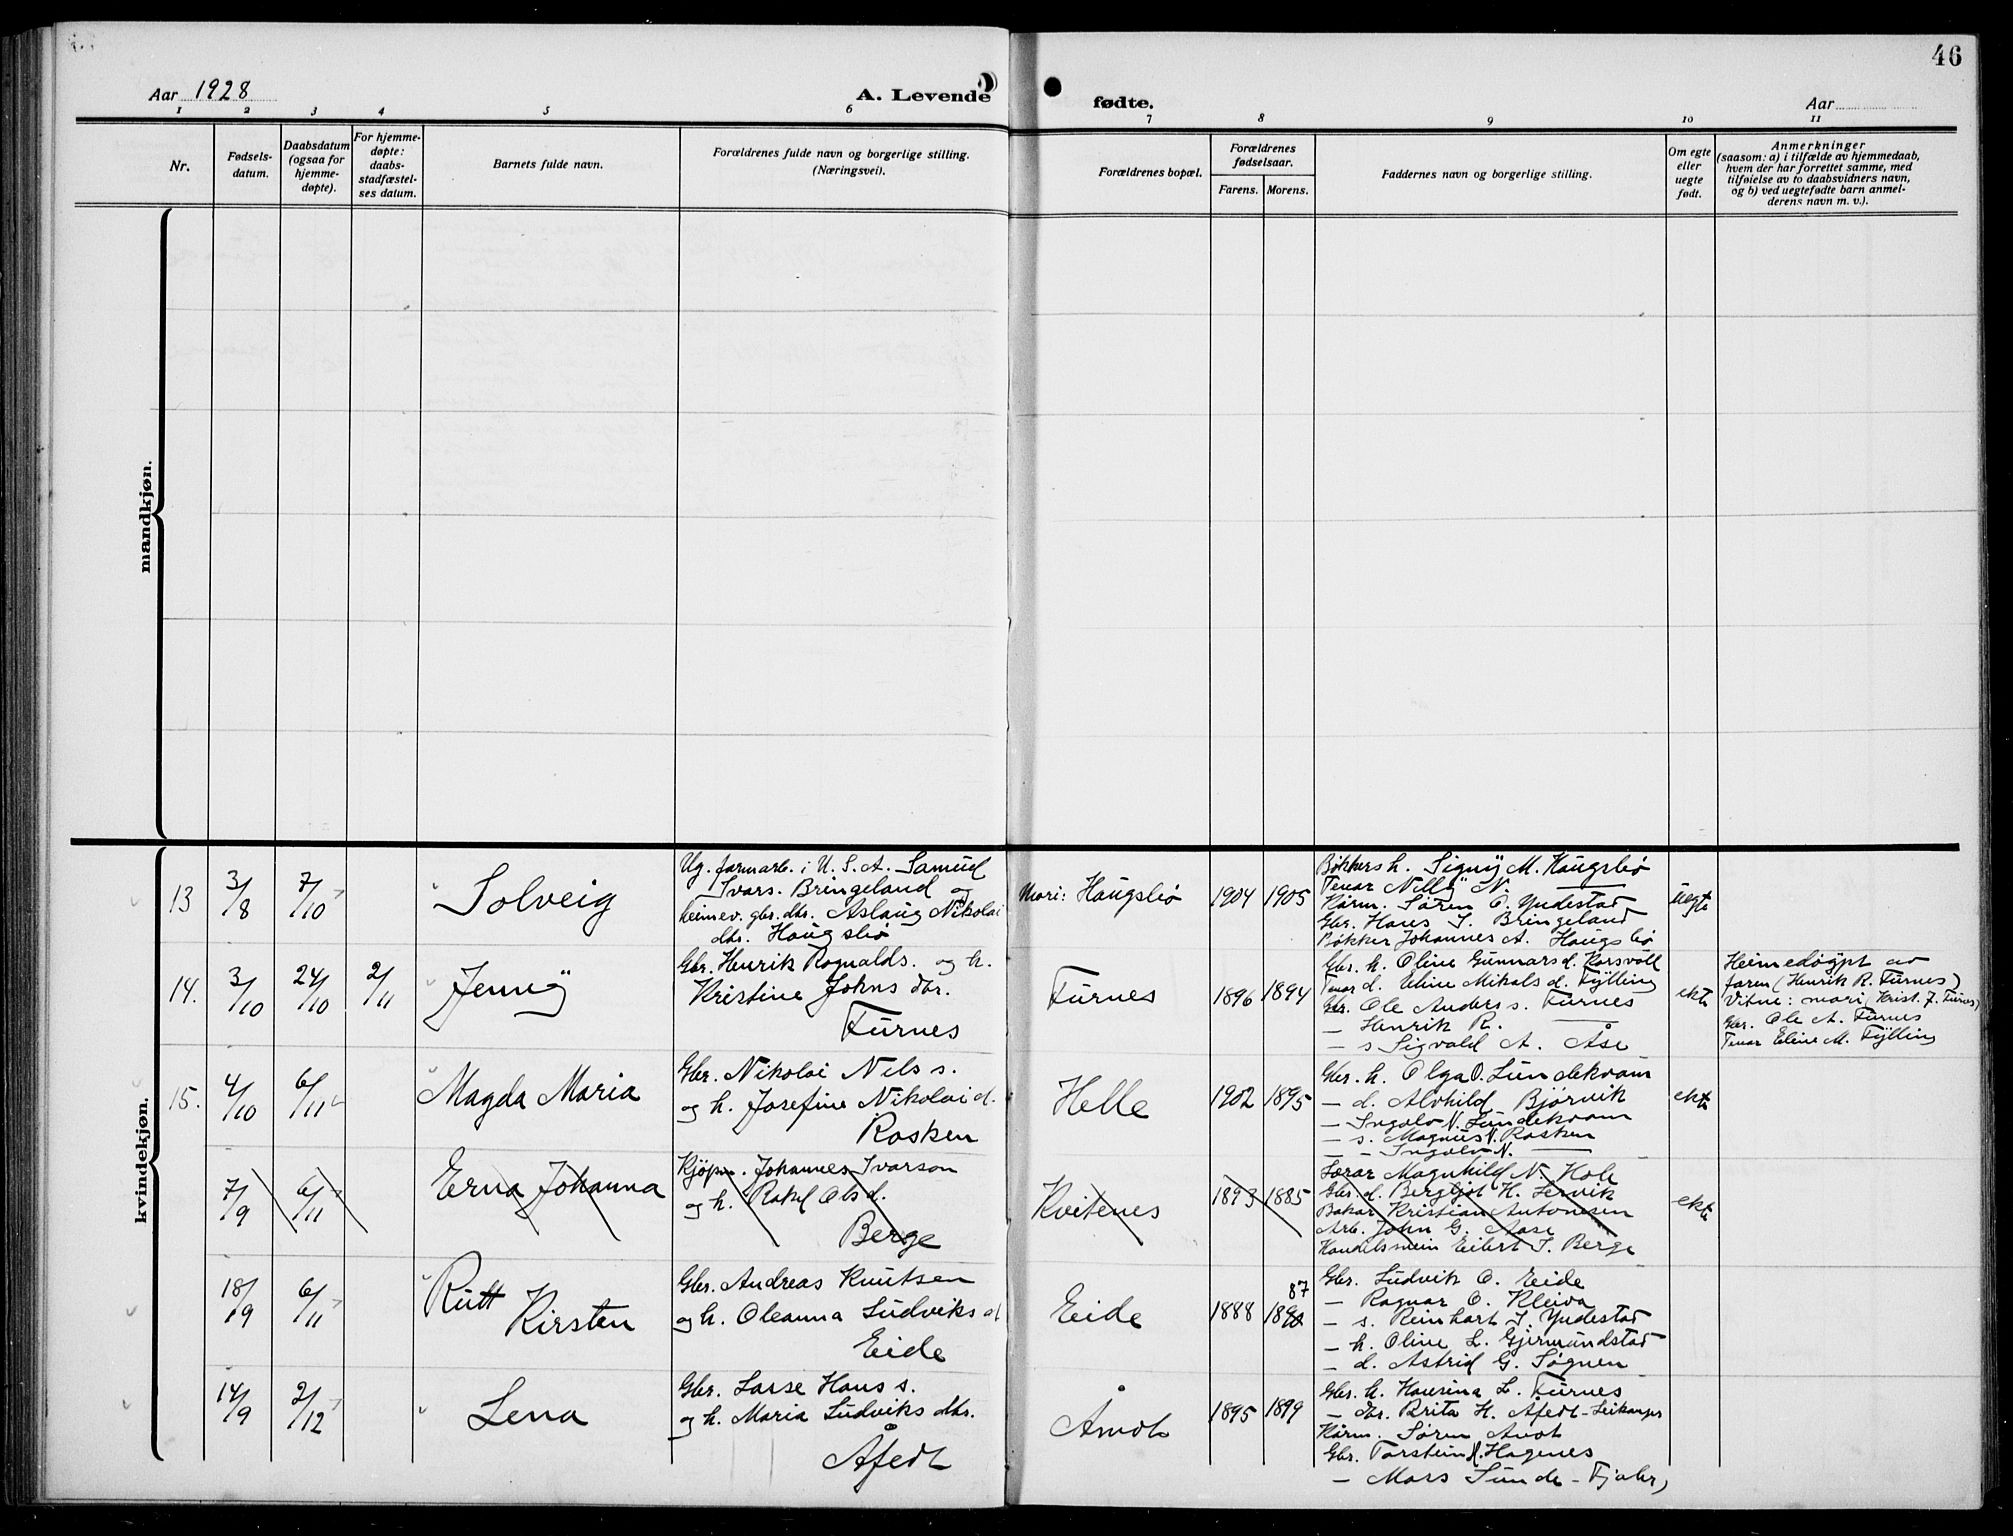 46
Aar 1928
A. Levende
fødte.
Aar
1 2 3 4 5 6 7 8 9 10 11
Nr.
Fødsels-
datum.
Daabsdatum
(ogsaa for
hjemme-
døpte).
For hjemme-
døpte:
daabs-
stadfæstel-
ses datum.
Barnets fulde navn.
Forældrenes fulde navn og borgerlige stilling.
(Næringsvei).
Forældrenes bopæl.
Forældrenes
fødselsaar.
Farens. Morens.
Faddernes navn og borgerlige stilling.
Om egte
eller
uegte
født.
Anmerkninger
(saasom: a) i tilfælde av hjemmedaab,
hvem der har forrettet samme, med
tilføielse av to daabsvidners navn,
og b) ved uegtefødte barn anmel-
derens navn m. v.).
mandkjøn.
kvindekjøn.
13 3/8 7/10 Solveig
Ug. farmarb. i U. S. A. Samuel
Ivars. Bringeland og
heimev. gbr. dtr. Aslaug Nikolai
dtr. Haugsbø
Mori: Haugsbø 1904 1905
Bøkkersh. Signy M. Haugsbø
Tenar Nelly N. —
Kårm. Søren O. Yndestad
Gbr. Hans I. Bringeland
Bøkker Johannes A. Haugsbø
uegte
14. 3/10 24/10 2/11 Jenny
Gbr. Henrik Rognalds. og h.
Kristine Johns dtr.
Furnes
Furnes 1896 1894
Gbr. h. Oline Gunnarsd. Korsvoll
Tenar d. Eline Mikals d. Fylling
Gbr. Ole Anders s. Furnes
— Henrik R. —
— s Sigvald A. Åse
ekte
Heimedøypt av
faren (Henrik R. Furnes)
Vitne: mori (Krist. J. Furnes)
Gbr. Ole A. Furnes
Tenar Eline M. Fylling
15. 4/10 6/11 Magda Maria
Gbr. Nikolai Nils s.
og h. Josefine Nikolai d.
Rosken
Helle 1902 1895
Gbr. h. Olga O. Lundekvam
— d. Alvhild Bjørvik
— Ingolv N. Lundekvam
— s. Magnus N. Rosken
— — Ingolv N. —
ekte
7/9 6/11 Erna Johanna
Kjøpm. Johannes Ivarson
og h. Rakel Ols d.
Berge
Kvitenes 1893 1885
Lærar Magnhild N. Hole
Gbr. d. Bergljot H. Lervik
Bakar Kristian Antonsen
Arb. John G. Aase
Handelsmein Eilert I. Berge
ekte
18/9 6/11 Rutt
Kirsten
Gbr. Andreas Knutsen
og h. Oleanna Ludviks d
Eide
Eide 1888 1890 87
Gbr. Ludvik O. Eide
— Ragnar O. Kleiva
— s. Reinhart I. Yndestad
— h. Oline L. Gjermundstad
— d. Astrid G. Søgnen
14/9 2/12 Lena
Gbr. Lasse Hans s.
og h. Maria Ludviks dtr.
Åfedt
1895 1899
Gbr. h. Hansina L. Furnes
— dtr. Brita H. Åfedt - Leikanger
Kårm. Søren
Gbr. Torstein H. Hagenes
— Mars Sunde -